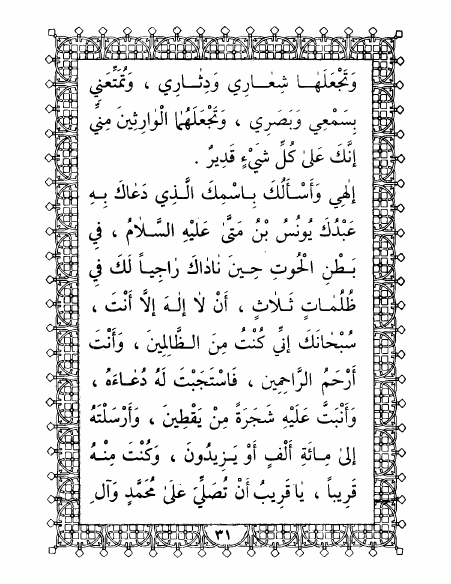 وَتَجْعَلَهٰـا شِعٰـارِي وَدِثٰـارِي ، وَتُمَتِّعَنِي
بِسَمْعِي وَبَصَرِي ، وَتَجْعَلَهُمٰا الْوٰارِثِينَ مِنِّي
إِنَّكَ عَلىٰ كُلِّ شَيْءٍ قَدِيرٌ .
إِلٰهِي وَأَسْـأَلُكَ بِـاسْمِكَ الَّـذِي دَعٰاكَ بِـهِ
عَبْدُكَ يُونُسُ بْنُ مَتّىٰ عَلَيْهِ السَّـلٰامُ ، فِي
بَـطْنِ الْحُوتِ حِـينَ نٰادٰاكَ رٰاجِيـاً لَكَ فِي
ظُلُمٰـاتٍ ثَـلٰاثٍ ، أَنْ لٰا إِلٰـهَ إِلَّا أَنْتَ ،
سُبْحٰانَكَ إِنِّي كُنْتُ مِنَ الـظّٰالِمِينَ ، وَأَنْتَ
أَرْحَمُ الرّٰاحِمِين ، فَاسْتَجَبْتَ لَهُ دُعٰـاءَهُ ،
وَأَنْبَتَّ عَلَيْهِ شَجَرَةً مِنْ يَقْطِينَ ، وَأَرْسَلْتَهُ
إِلىٰ مِـائَةِ أَلْفٍ أَوْ يَـزِيدُونَ ، وَكُنْتَ مِنْـهُ
قَرِيباً ، يٰا قَرِيبُ أَنْ تُصَلِّيَ عَلىٰ مُحَمَّدٍ وَآلِ
٣١